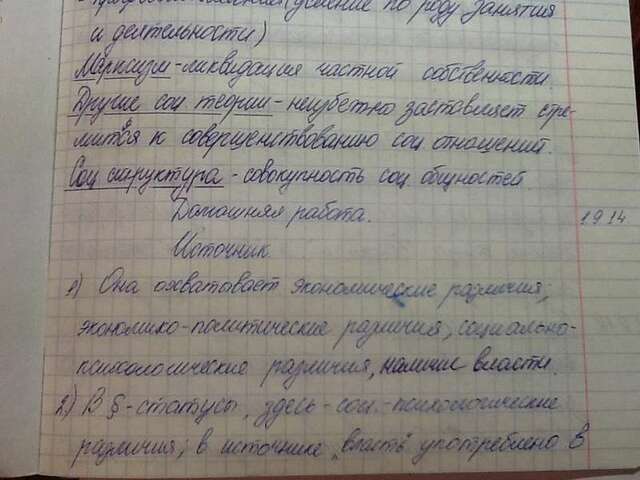 (деление по роду занятия
и деятельности)
Марксизм - ликвидация частной собственности.
Другие соц теории - неизбежно заставляет стре-
мится к совершенствованию соц отношений.
Соц структура - совокупность соц. общностей
Домашняя работа.
19.14
Источник.
1) Она охватывает экономические различия,
экономико-политические различия, социально-
психологические различия, наличие власти.
2) В §-статусы, здесь - соц.-психологические
различия; в источнике "власть" употреблено в